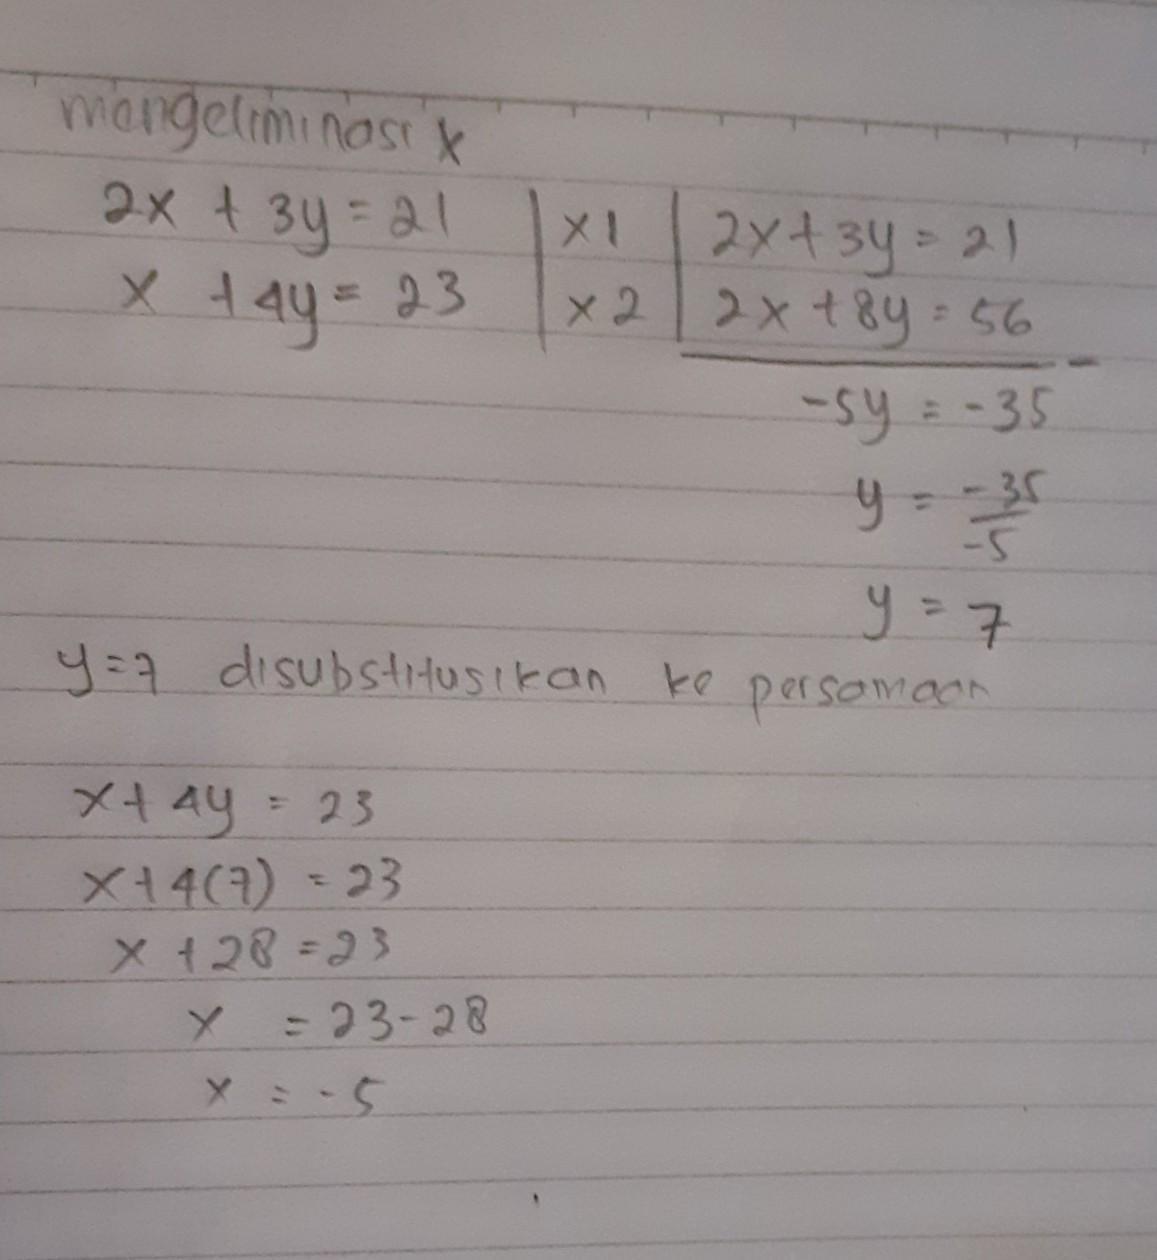 mengeliminasi x
2x + 3y = 21 | x1 | 2x + 3y = 21
x + 4y = 23 | x2 | 2x + 8y = 56
-
-5y = -35
y = -35/-5
y = 7
y=7 disubstitusikan ke persamaan
x + 4y = 23
x + 4(7) = 23
x + 28 = 23
x = 23 - 28
x = -5